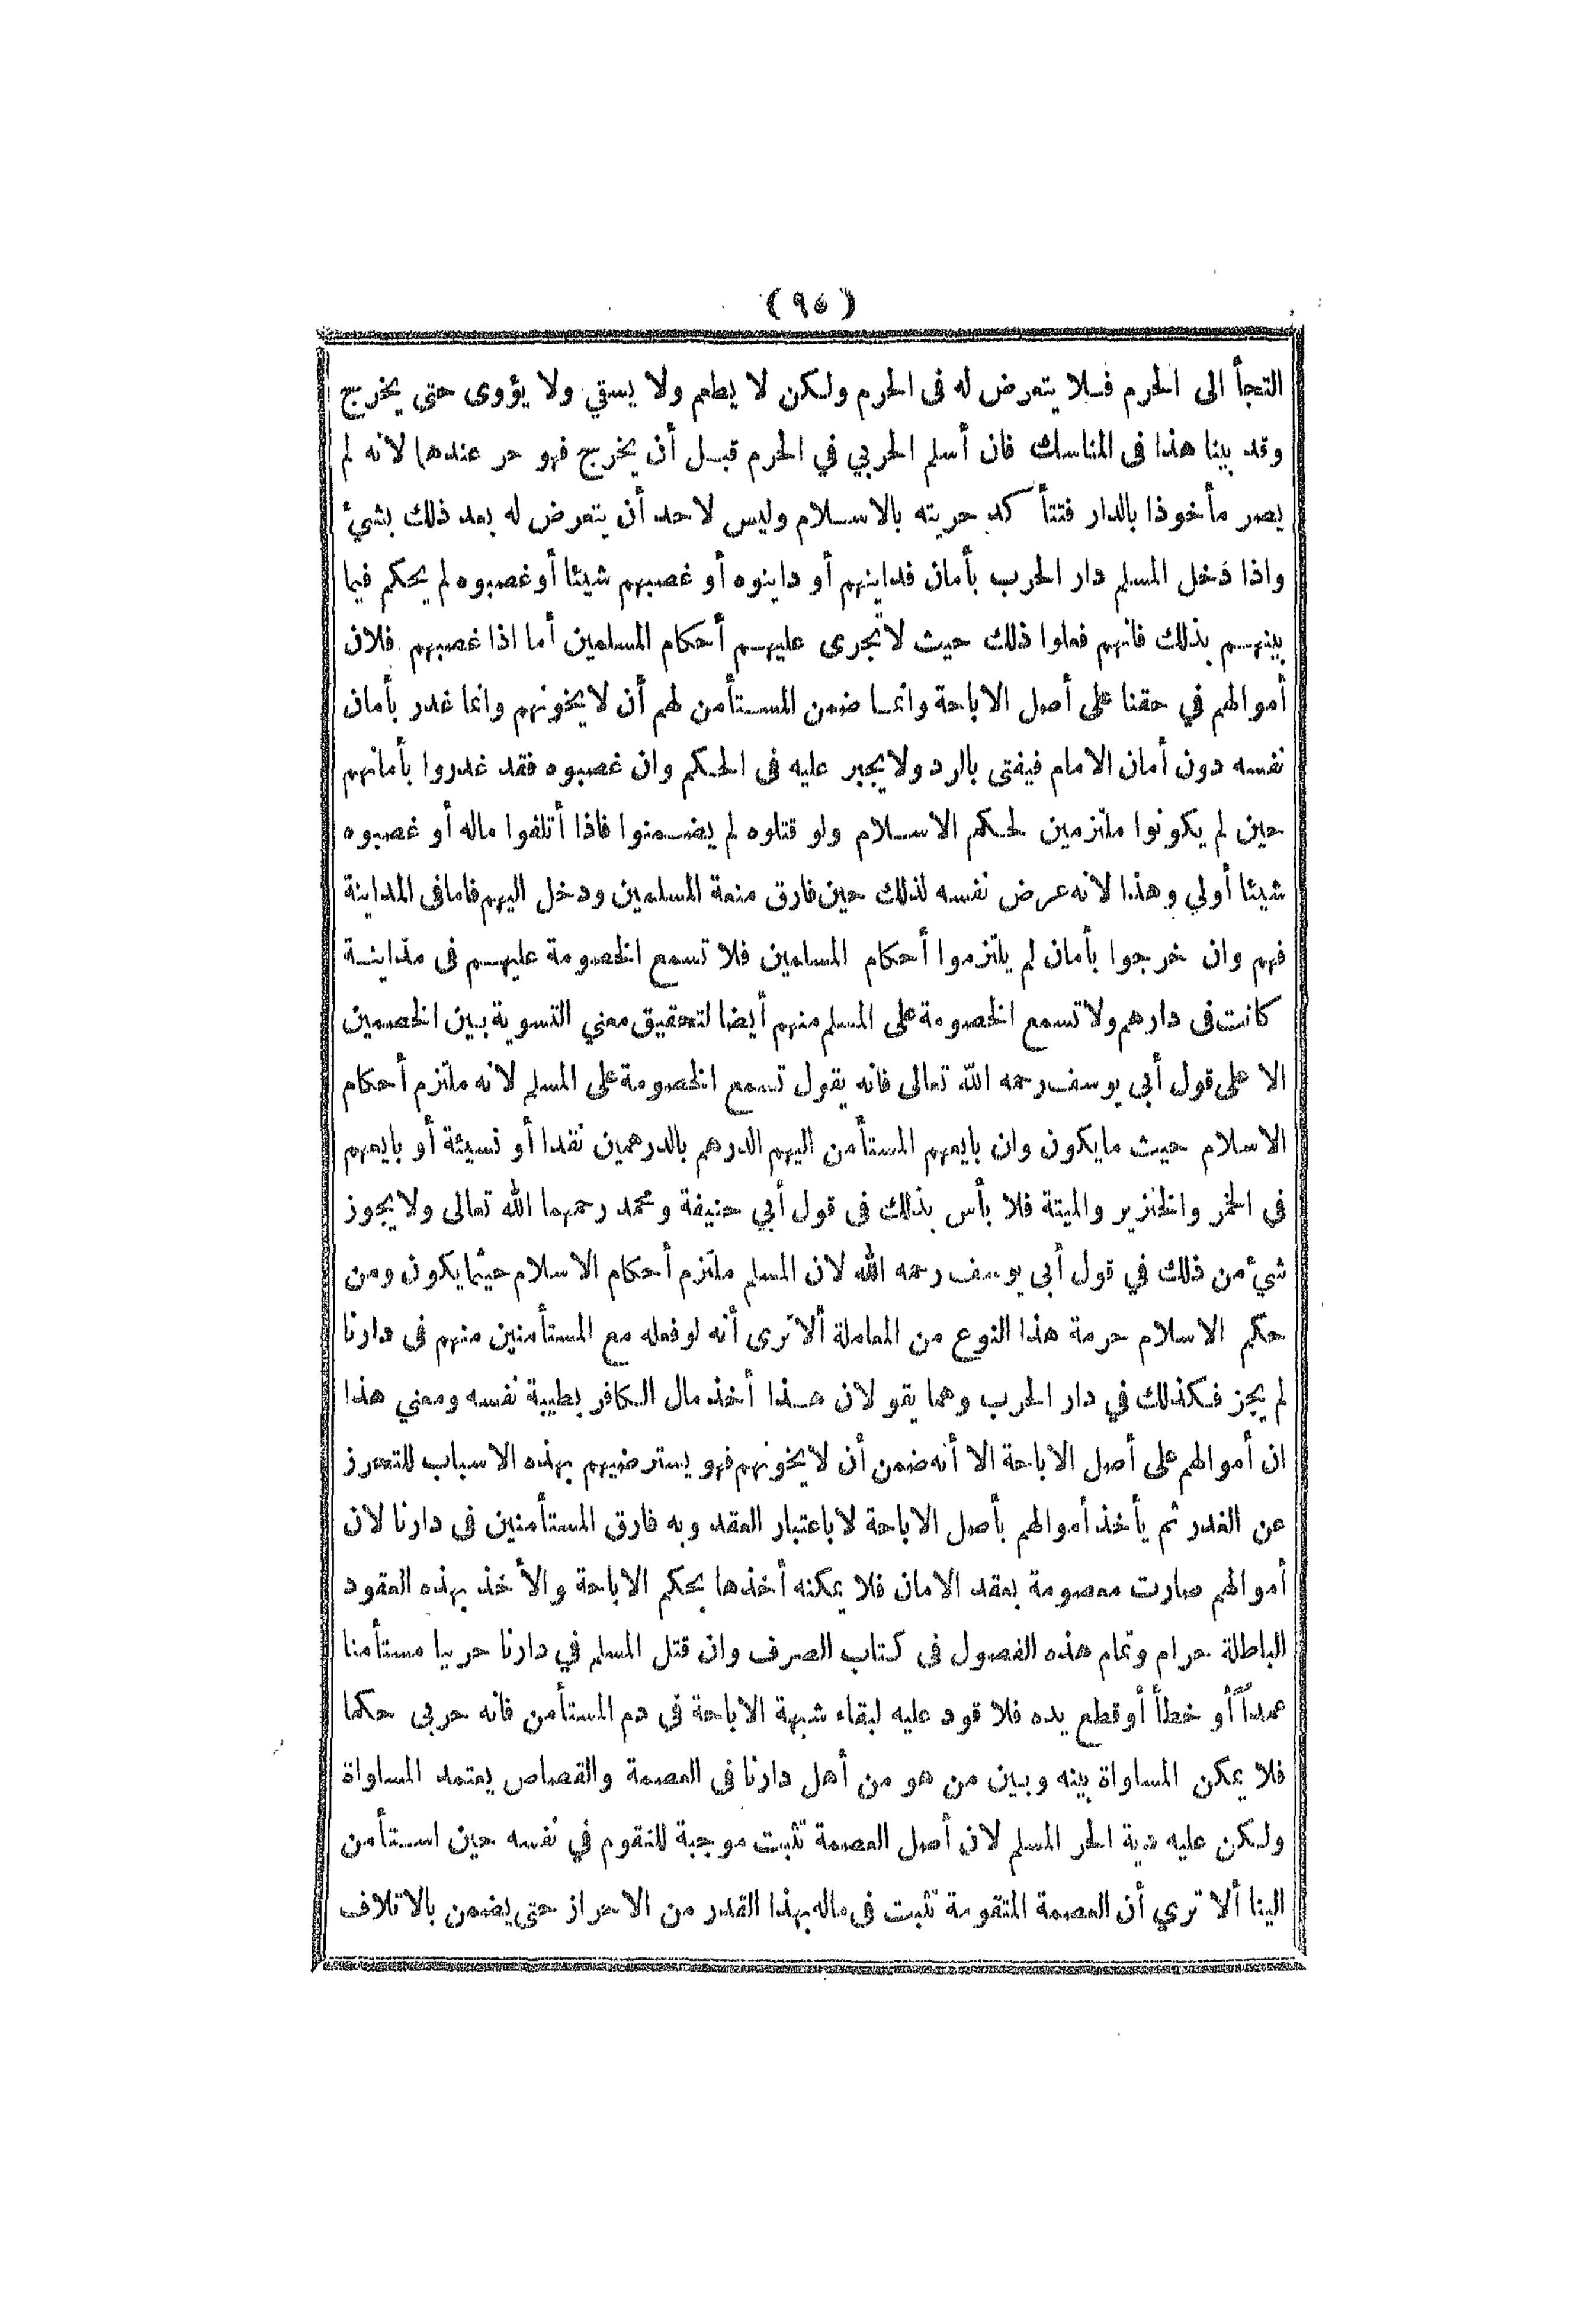 (٩٥)
التجأ الى الحرم فلا يتعرض له فى الحرم ولكن لا يطعم ولا يسقي ولا يؤوى حتى يخرج
وقد بينا هذا فى المناسك فان أسلم الحربي في الحرم قبل أن يخرج فهو حر عندهما لانه لم
يصر مأخوذا بالدار فتتأ كد حريته بالاسلام وليس لاحد أن يتعرض له بعد ذلك بشئ
واذا دخل المسلم دار الحرب بأمان فداينهم أو داينوه أو غصبهم شيئا أو غصبوه لم يحكم فيما
بينهم بذلك فانهم فعلوا ذلك حيث لا تجرى عليهم أحكام المسلمين أما اذا غصبهم فلان
أموالهم في حقنا على أصل الاباحة وانما ضمن المستأمن لهم أن لا يخونهم وانما غدر بأمان
نفسه دون أمان الامام فيفتى بالرد ولا يجبر عليه فى الحكم وان غصبوه فقد غدروا بأمانهم
حين لم يكونوا ملتزمين لحكم الاسلام ولو قتلوه لم يضمنوا فاذا أتلفوا ماله أو غصبوه
شيئا أولي وهذا لانه عرض نفسه لذلك حين فارق منعة المسلمين ودخل اليهم فاما فى المداينة
فهم وان خرجوا بأمان لم يلتزموا أحكام المسلمين فلا تسمع الخصومة عليهم فى مداينة
كانت فى دارهم ولا تسمع الخصومة على المسلم منهم أيضا لتحقيق معني التسوية بين الخصمين
الا على قول أبي يوسف رحمه الله تعالى فانه يقول تسمع الخصومة على المسلم لانه ملتزم أحكام
الاسلام حيث ما يكون وان بايعهم المستأمن اليهم الدرهم بالدرهمين نقدا أو نسيئة أو بايعهم
فى الخمر والخنزير والميتة فلا بأس بذلك فى قول أبي حنيفة ومحمد رحمهما الله تعالى ولا يجوز
شئ من ذلك في قول أبى يوسف رحمه الله لان المسلم ملتزم أحكام الاسلام حيثما يكون ومن
حكم الاسلام حرمة هذا النوع من المعاملة ألا ترى أنه لو فعله مع المستأمنين منهم فى دارنا
لم يجز فكذلك في دار الحرب وهما يقولان هذا أخذ مال الكافر بطيبة نفسه ومعني هذا
ان أموالهم على أصل الاباحة الا أنه ضمن أن لا يخونهم فهو يسترضيهم بهذه الاسباب للتحرز
عن الغدر ثم يأخذ أموالهم بأصل الاباحة لا باعتبار العقد وبه فارق المستأمنين في دارنا لان
أموالهم صارت معصومة بعقد الامان فلا يمكنه أخذها بحكم الاباحة والأخذ بهذه العقود
الباطلة حرام وتمام هذه الفصول فى كتاب الصرف وان قتل المسلم في دارنا حربيا مستأمنا
عمداً أو خطأً أو قطع يده فلا قود عليه لبقاء شبهة الاباحة في دم المستأمن فانه حربى حكما
فلا يمكن المساواة بينه وبين من هو من أهل دارنا فى العصمة والقصاص يعتمد المساواة
ولكن عليه دية الحر المسلم لان أصل العصمة تثبت موجبة للتقوم في نفسه حين استأمن
الينا ألا تري أن العصمة المتقومة تثبت فى ماله بهذا القدر من الاحراز حتى يضمن بالاتلاف